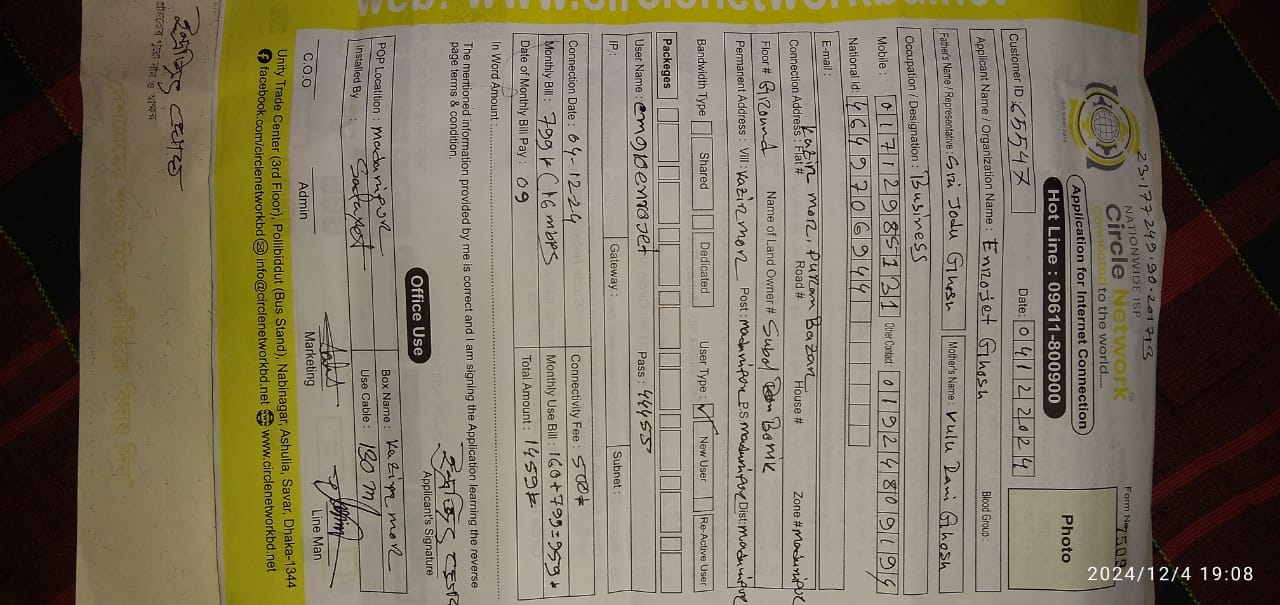 web: www.circlenetworkbd.net
23.17249,90.201743
NATIONWIDE ISP
Circle Network
connected to the world.....
Application for Internet Connection
Hot Line : 09611-800900
Form No 7509
Photo
Customer ID : 65547
Date: 04122024
Applicant Name / Organization Name : Enrojet Ghosh
Blood Group :
Father's Name / Representative : Sri Jodu Ghosh
Mother's Name : Vulu Rani Ghosh
Occupation / Designation : Business
Mobile : 01712985131
Other Contact : 01924809194
National Id: 4649706944
E-mail :
Connection Address : Flat# Kazir mor, Puran Bazar Road# House# Zone # madaripur
Floor# Ground Name of Land Owner# Subol Bonik
Permanent Address : Vill : Kazir mor Post : madaripur P.S madaripur Dist: madaripur
Bandwidth Type Shared Dedicated User Type : ✓ New User Re-Active User
Packeges
User Name : Pass : 44455
IP : Gateway : Subnet :
Connection Date : 04-12-24 Connectivity Fee : 500
Monthly Bill : 799 (16 mbps Monthly Use Bill : 160+799=959
Date of Monthly Bill Pay : 09 Total Amount : 1459
In Word Amount :
The mentioned information provided by me is correct and I am signing the Application learning the reverse
page terms & condition.
Applicant's Signature
Office Use
POP Locatition : madaripur Box Name : Kazir mor
Installed By : Use Cable : 180 m
C.O.O Admin Marketing Line Man
Unity Trade Center (3rd Floor), Pollibiddut (Bus Stand), Nabinagar, Ashulia, Savar, Dhaka-1344
facebook.com/circlenetworkbd info@circlenetworkbd.net www.circlenetworkbd.net
2024/12/4 19:08